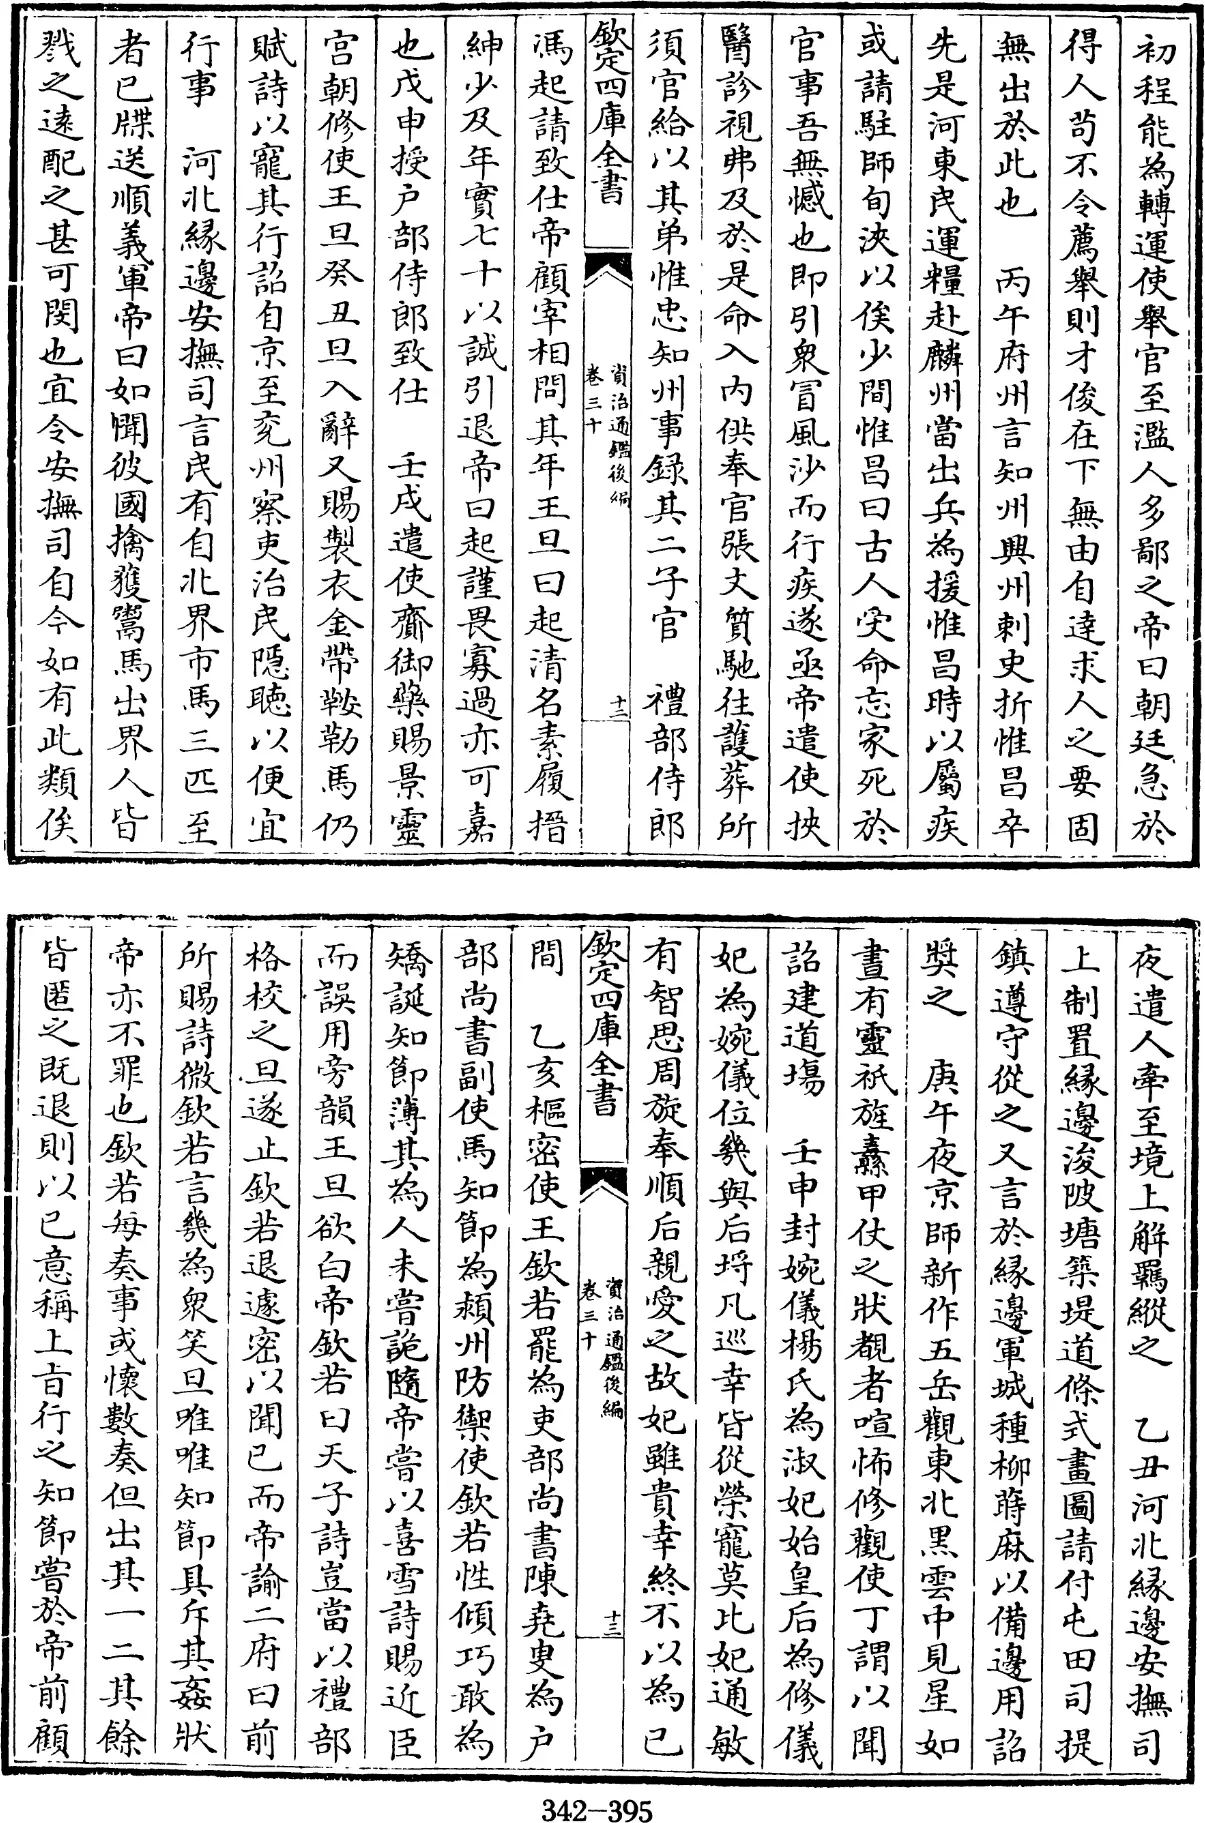 初程能為轉運使舉官至濫人多鄙之帝曰朝廷急於
得人苟不令薦舉則才俊在下無由自達求人之要固
無出於此也　丙午府州言知州興州刺史折惟昌卒
先是河東民運糧赴麟州當出兵為援惟昌時以屬疾
或請駐師旬浹以俟少間惟昌曰古人受命忘家死於
官事吾無憾也即引衆冒風沙而行疾遂亟帝遣使挾
醫診視弗及於是命入内供奉官張文質馳往護葬所
須官給以其弟惟忠知州事録其二子官　禮部侍郎
欽定四庫全書
資治通鑑後編
卷三十
十二
馮起請致仕帝顧宰相問其年王旦曰起清名素履搢
紳少及年實七十以誠引退帝曰起謹畏寡過亦可嘉
也戊申授户部侍郎致仕　壬戌遣使齎御藥賜景靈
宫朝修使王旦癸丑旦入辭又賜製衣金帶鞍勒馬仍
賦詩以寵其行詔自京至兖州察吏治民隱聴以便宜
行事　河北緣邊安撫司言民有自北界市馬三匹至
者已牒送順義軍帝曰如聞彼國擒獲鬻馬出界人皆
戮之逺配之甚可閔也宜令安撫司自今如有此類俟
夜遣人牽至境上解羈縱之　乙丑河北緣邊安撫司
上制置緣邊浚陂塘築堤道條式畫圖請付屯田司提
鎮遵守從之又言於緣邊軍城種柳蒔麻以備邊用詔
奬之　庚午夜京師新作五岳觀東北黑雲中見星如
晝有靈祇旌纛甲仗之狀覩者喧怖修觀使丁謂以聞
詔建道場　壬申封婉儀楊氏為淑妃始皇后為修儀
妃為婉儀位幾與后埒凡巡幸皆從榮寵莫比妃通敏
有智思周旋奉順后親愛之故妃雖貴幸終不以為已
欽定四庫全書
資治通鑑後編
卷三十
十三
間　乙亥樞密使王欽若罷為吏部尚書陳堯叟為户
部尚書副使馬知節為潁州防禦使欽若性傾巧敢為
矯誕知節薄其為人未嘗詭隨帝嘗以喜雪詩賜近臣
而誤用旁韻王旦欲白帝欽若曰天子詩豈當以禮部
格校之旦遂止欽若退遽密以聞已而帝諭二府曰前
所賜詩微欽若言幾為衆笑旦唯唯知節具斥其姦狀
帝亦不罪也欽若每奏事或懷數奏但出其一二其餘
皆匿之既退則以已意稱上㫖行之知節嘗於帝前顧
342-395